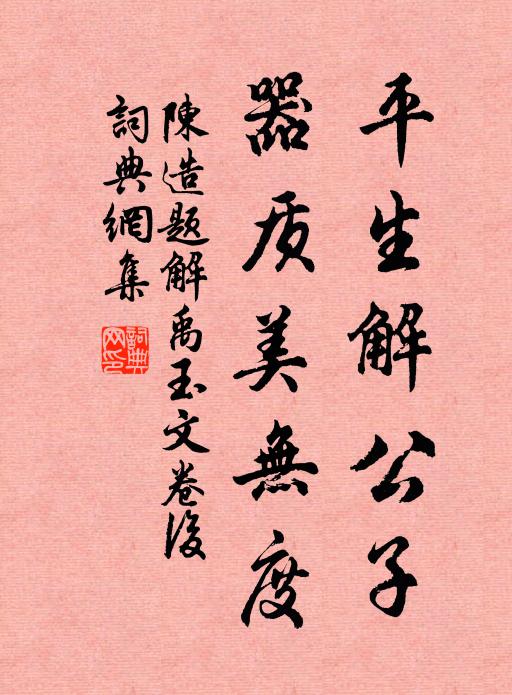 平生解公子
器质美無度
陳造题解禹玉文卷後
詞典網集
詞典网印